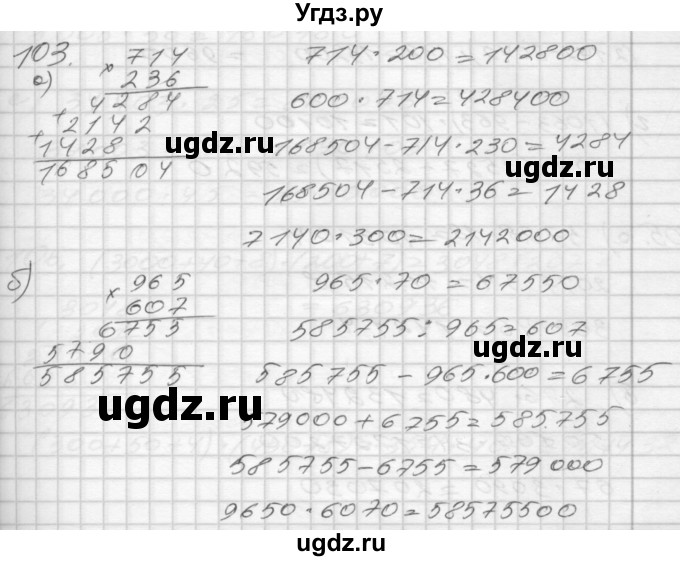 Угдз.ру
103.
а)
× 714
236
+ 4284
+ 2142
1428
168504
714 · 200 = 142800
600 · 714 = 428400
168504 - 714 · 230 = 4284
168504 - 714 · 36 = 1428
7140 · 300 = 2142000
б)
× 965
607
6755
5790
585755
965 · 70 = 67550
585755 : 965 = 607
585755 - 965 · 600 = 6755
579000 + 6755 = 585755
585755 - 6755 = 579000
9650 · 6070 = 58575500
ugdz.ru
ugdz.ru
ugdz.ru
ugdz.ru
ugdz.ru